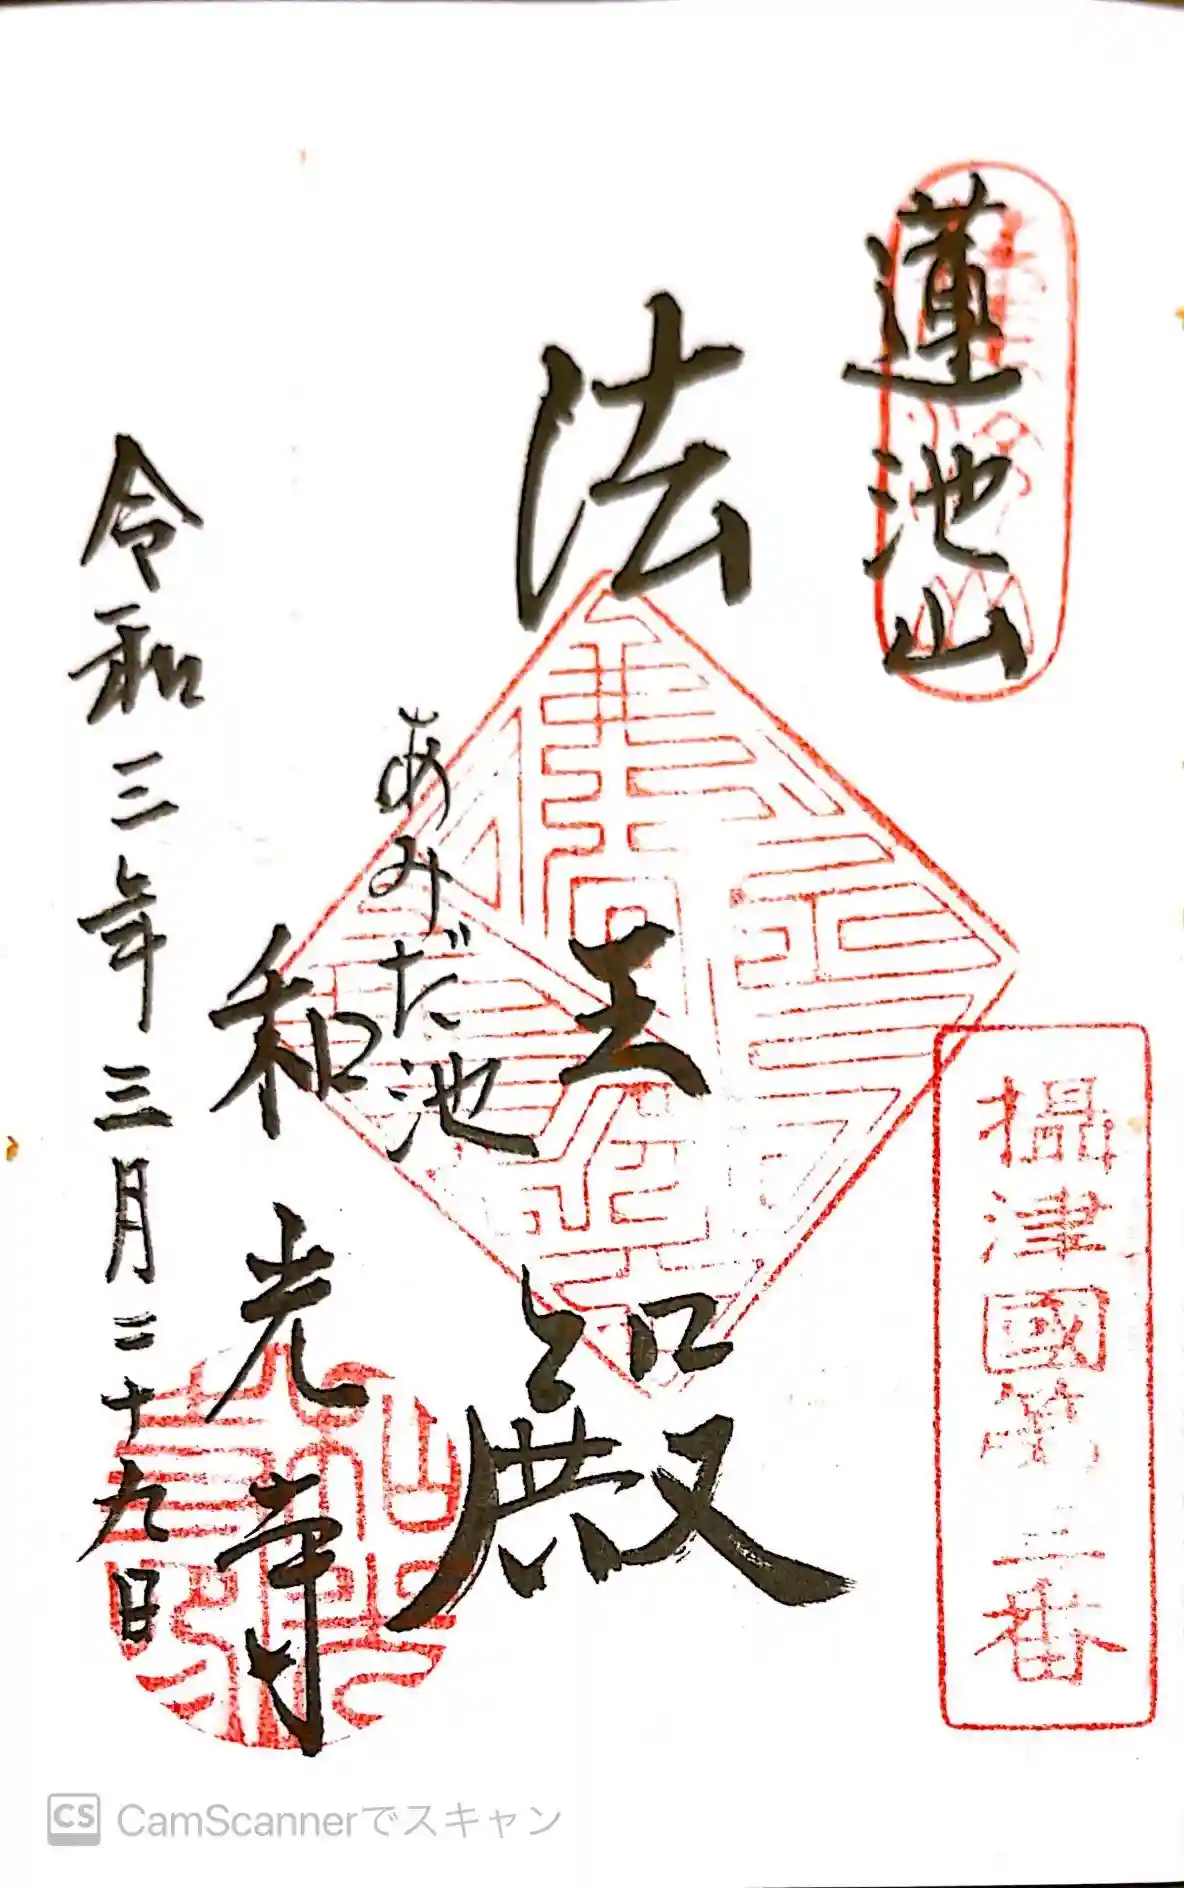 蓮池山
攝津國第三番
法王殿
あみだ池
和光寺
令和三年三月二十九日
CS CamScannerでスキャン